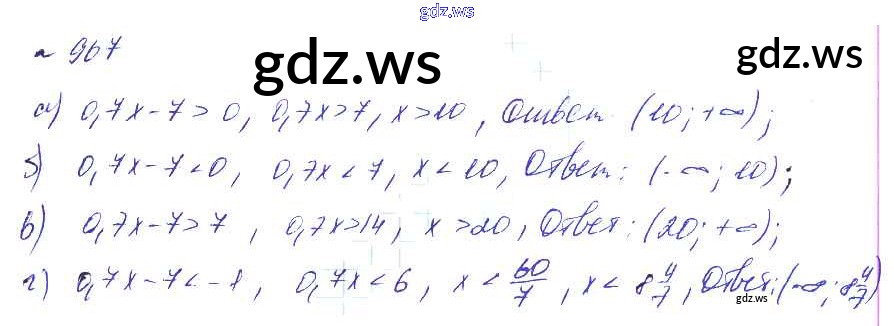 gdz.ws
№ 967
gdz.ws
gdz.ws
а) 0,7x - 7 > 0, 0,7x > 7, x > 10, Ответ (10; +∞);
б) 0,7x - 7 < 0, 0,7x < 7, x < 10, Ответ: (-∞; 10);
в) 0,7x - 7 > 7, 0,7x > 14, x > 20, Ответ: (20; +∞);
г) 0,7x - 7 < -1, 0,7x < 6, x < 60/7, x < 8 4/7, Ответ: (-∞; 8 4/7)
gdz.ws